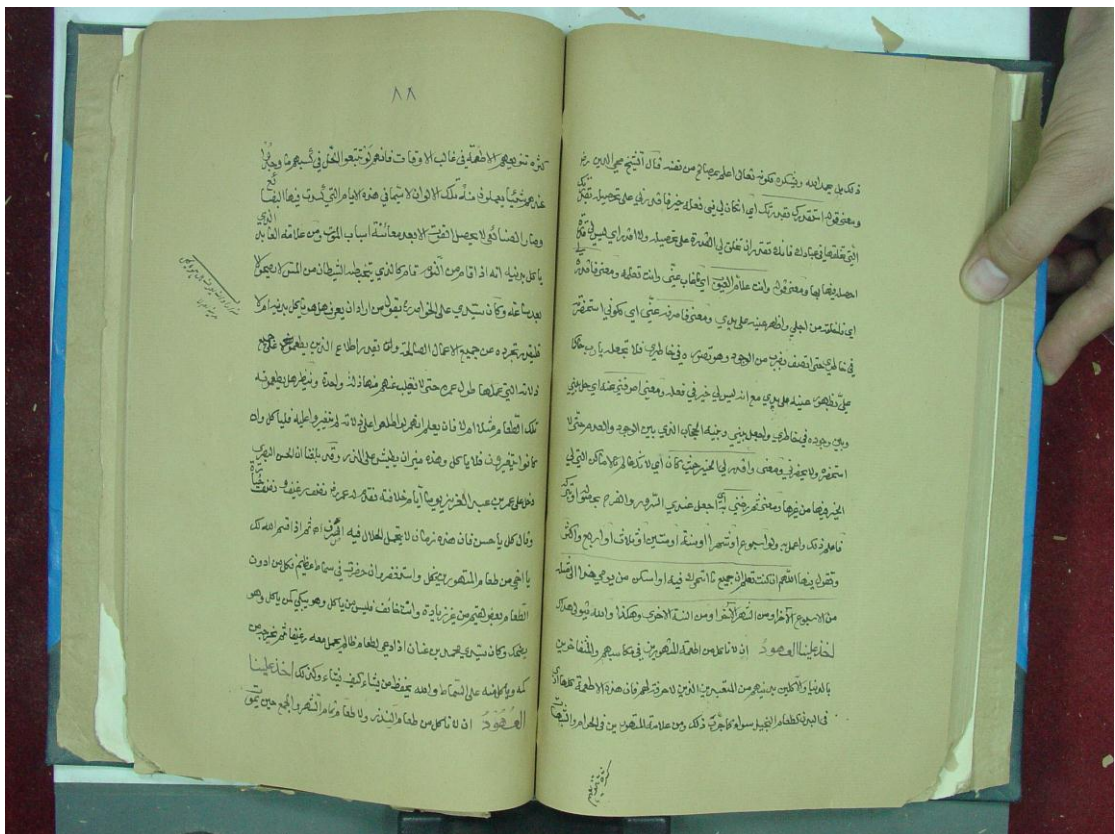 ذلك بل حمد الله ويشكره لكونه تعالى اعلم بمصالحه من نفسه قال الشيخ محيي الدين
ومعنى قوله استقدرك بقدرتك اي ان كان لي في فعله خير فاقدرني على تحصيله بقدرتك
التي تخلقها في عبادك فانك تقدر ان تخلق لي القدرة على تحصيله ولا اقدر اي ليس لي قدرة
احصله بها ومعنى قوله وانت علام الغيوب اي ما غاب عني وانت تعلمه ومعنى فاقدره
اي فاخلقه من اجلي واظهر عينه على يدي ومعنى فاصرفه عني اي لكوني استحضرته
في خاطري حتى اتصف بضرب من الوجود وهو تصوره في خاطري فلا تجعله يا رب حاكما
علي بظهور عينه على يدي مع انه ليس لي خير في فعله ومعنى اصرفني عنه اي حل بيني
وبين وجوده في خاطري واجعل بيني وبينه الحجاب الذي بين الوجود والعدم حتى لا
استحضره ولا يحضرني ومعنى واقدر لي الخير حيث كان اي لانك عالم بالاماكن التي لي
الخير فيها من غيرها ومعنى ثم رضني به اي اجعل عندي السرور والفرح بحصوله او تركه
فاعلم ذلك واعمل به ولو اسبوعا او شهرا او سنة او سنتين او ثلاث او اربع واكثر
وتقول فيها اللهم ان كنت تعلم ان جميع ما اتحرك فيه او اسكن من يومي هذا الى مثله
من الاسبوع الآخر او من الشهر الآخر او من السنة الاخرى وهكذا والله يتولى هداك
اخذ علينا العهود ان لا ناكل من اطعمة المتهورين في مكاسبهم والمتفاخرين
بالدنيا والآكلين بدينهم من المتعبدين الذين لا حرفة لهم فان هذه الاطعمة كلها
في البدن كطعام البخيل سواء كما جرب ذلك ومن علامة المتهورين في الحرام والشبهات
٨٨
كثرة تنويعهم الاطعمة في غالب الاوقات فانهم لو تتبعوا الحل في كسبهم ما وجدوا
عندهم شيئا يعملون منه تلك الالوان لا سيما في هذه الايام التي كسدت فيها البضائع
وصار الصنائعي لا يحصل القوت الا بعد معاينة اسباب الموت ومن علامة العابد الذي
ياكل بدينه انه اذا قام من النوم قام كالذي يتخبطه الشيطان من المس لا يصحو الا
بعد ساعة وكان سيدي علي الخواص يقول من اراد ان يعرف هل هو ياكل بدينه ام لا
فليقدر تجرده عن جميع الاعمال الصالحة وان يقدر اطلاع الذين يطعمونه على جميع
زلاته التي عملها طول عمره حتى لا يغيب عنهم منها زلة واحدة وينظر هل يطعمونه
تلك الطعام مثلا ام لا فان يعلم انهم لو اطلعوا على زلاته لم يتغيروا عليه فلياكل وان
كانوا يتغيرون فلا ياكل وهذه ميزان يطيش على الذر وقد بلغنا ان الحسن البصري
دخل على عمر بن عبد العزيز يوما ايام خلافته فقدم له عمر نصف رغيف ونصف خيارة
وقال كل يا حسن فان هذه زمان لا يحتمل الحلال فيه السرف اه ثم اذا قسم الله لك
يا اخي من طعام المتهورين فكل واستغفر وان حضرت في سماط عظيم فكل من ادون
الطعام بعض لقيمات من غير زيادة وانت خائف فليس من ياكل وهو يبكي كمن ياكل وهو
يضحك وكان سيدي محمد بن عنان اذا دعي لطعام ظالم يحمل معه رغيفا ثم يخرجه من
كمه وياكل منه على السماط والله يحفظ من يشاء كيف يشاء وكذلك اخذ علينا
العهود ان لا ناكل من طعام النذر ولا طعام تمام الشهر والجمع حين يموت